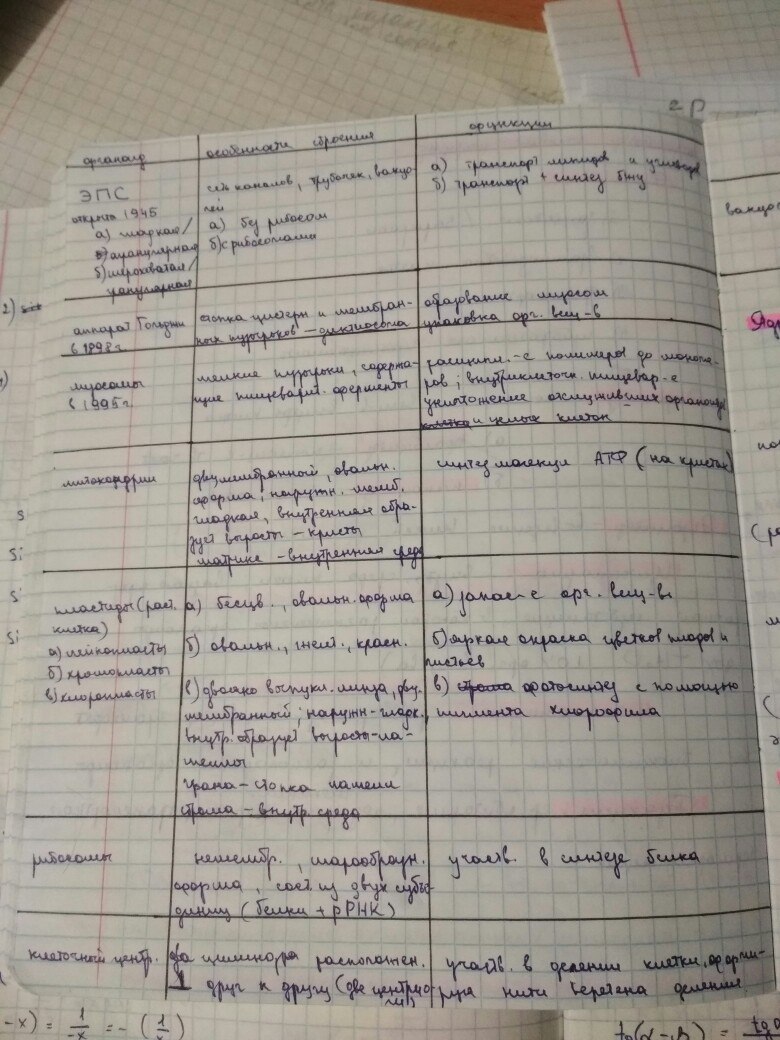 2 Р
органоид особенности строения функции
ЭПС
открыта 1945
а) гладкая/
агранулярная
б) шероховатая/
гранулярная
сеть каналов, трубочек, вакуо-
лей
а) без рибосом
б) с рибосомами
а) транспорт липидов и углеводов
б) транспорт + синтез белку
2)
аппарат Гольджи
в 1898 г.
стопка цистерн и мембран-
ных пузырьков – диктиосома
образование лизосом
упаковка орг. вещ-в
лизосомы
в 1995 г.
мелкие пузырьки, содержа-
щие пищеварит. ферменты
расщепл.-е полимеров до мономе-
ров; внутриклеточн. пищевар-е
уничтожение отслуживших органоидов
клетки и целых клеток
митохондрии
двумембранный, овальн.
форма; наружн. мемб.
гладкая, внутренняя обра-
зует выросты – кристы
матрикс – внутренняя среда
синтез молекул АТФ (на кристах)
s
Si
Si
Si
пластиды (раст.
клетка)
а) лейкопласты
б) хромопласты
в) хлоропласты
а) бесцв., овальн. форма
б) овальн., желт., красн.
в) двояко выпукл. линза, дву-
мембранный; наружн-гладк.,
внутр. образует выросты-ла-
меллы
грана – стопка ламелл
строма – внутр. среда
а) запас-е орг. вещ-в
б) яркая окраска цветков плодов и
листьев
в) строма фотосинтез с помощью
пигмента хлорофила
рибосомы
немембр., шарообразн.
форма, сост. из двух субъе-
диниц (белки + рРНК)
участв. в синтезе белка
клеточный центр.
два цилиндра расположен.
⊥ друг к другу (две центрио-
ли)
участв. в делении клетки, форми-
руя нити веретена деления
вакуо
Ядр
по
(ре
м
(
-x) = 1/-x = -(1/x)
tg(α-β) = tg α